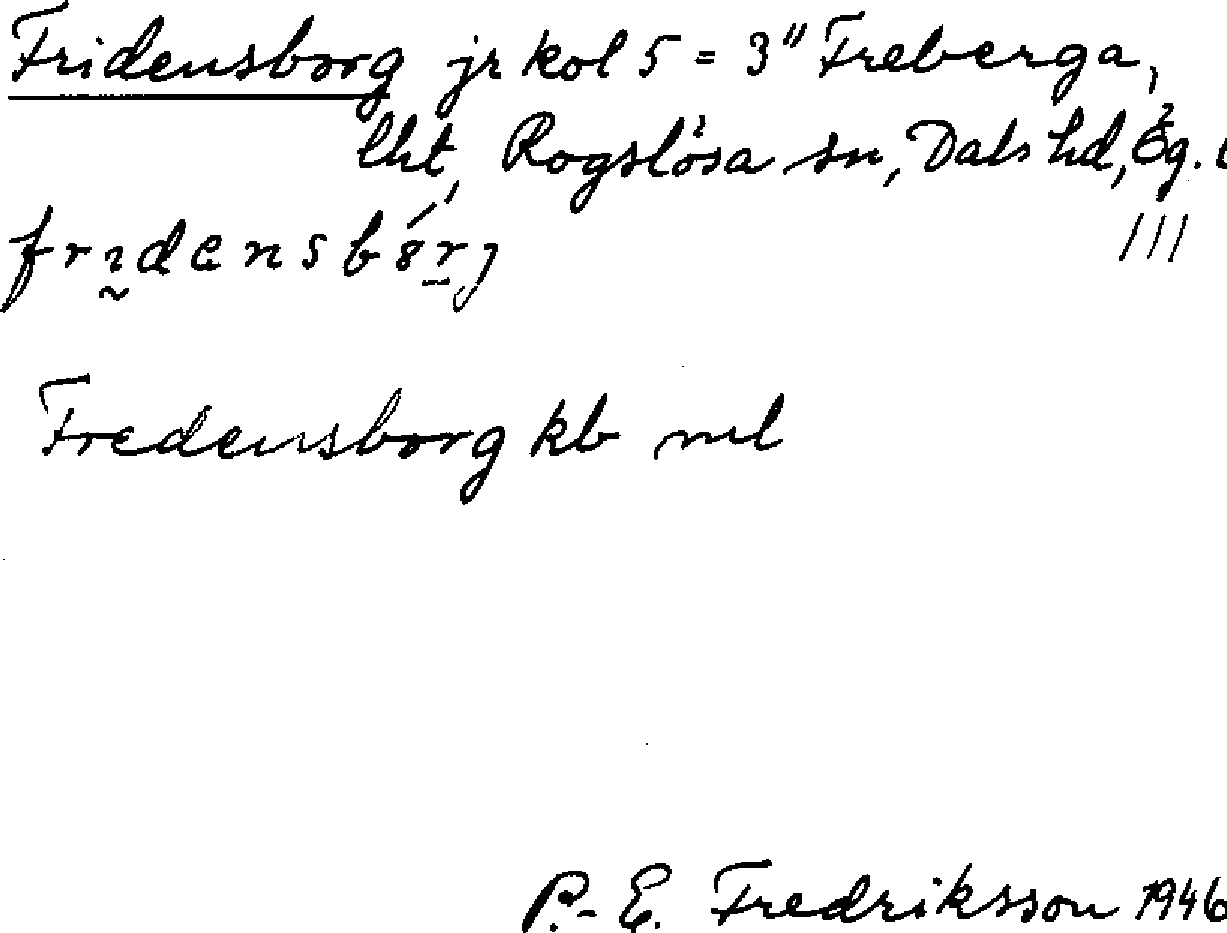 Fridensborg jr kol 5 = 3" Freberga,
lht, Rogslösa sn, Dals hd, Ög.
fridensbórj ///
Fredensborg kb ml
P.-E. Fredriksson 1946